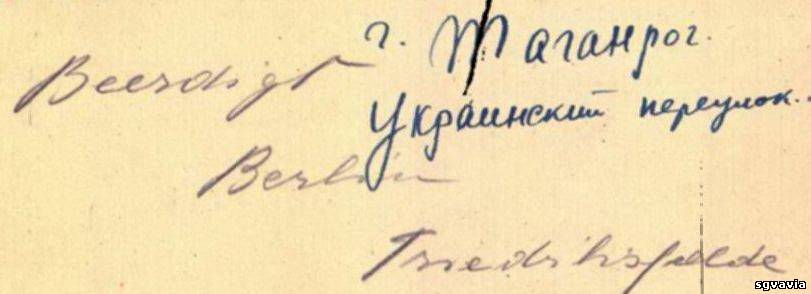 г. Таганрог.
Beerdigt
Украинский переулок.
Berlin
Friedrichsfelde
sgvavia